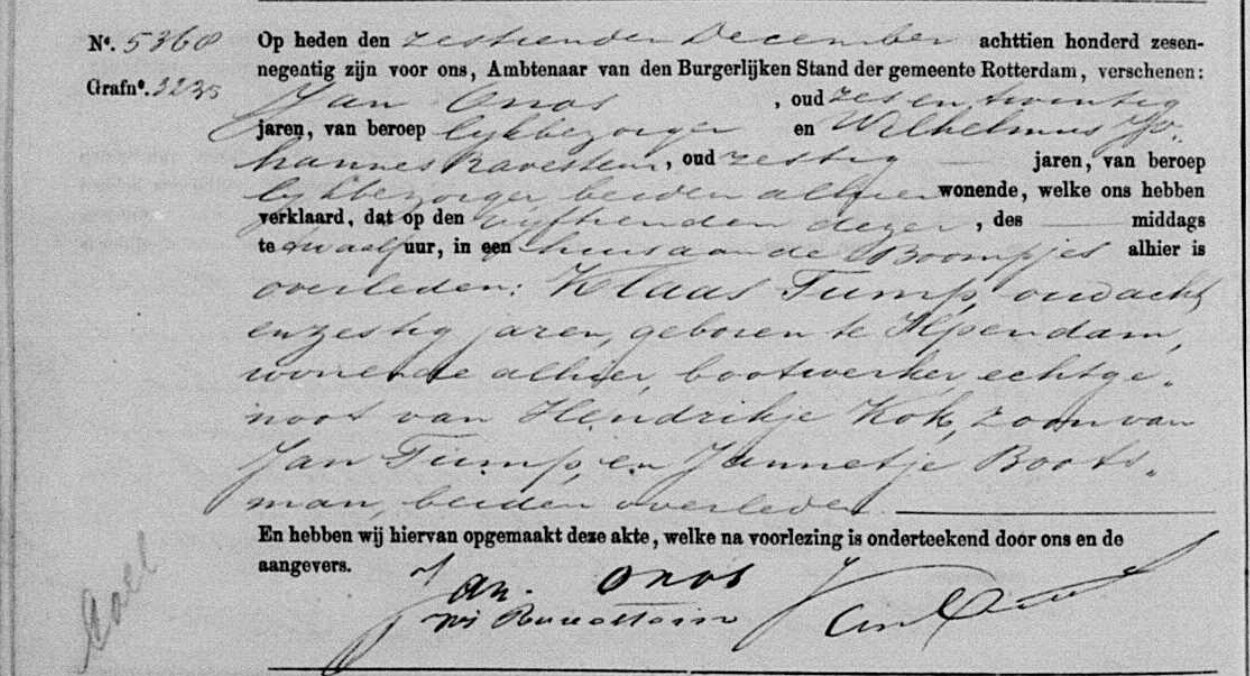 Nº. 5360 Op heden den zestienden December achttien honderd zesen-
negentig zijn voor ons, Ambtenaar van den Burgerlijken Stand der gemeente Rotterdam, verschenen:
Grafnº. 3235 Jan Onos , oud zes en twintig
jaren, van beroep lijkbezorger en Wilhelmus Jo-
hannes Ravestein, oud zestig jaren, van beroep
lijkbezorger, beiden alhier wonende, welke ons hebben
verklaard, dat op den vijftienden dezer , des middags
te twaalf uur, in een huis aan de Boompjes alhier is
overleden: Klaas Tump, oud acht
en zestig jaren, geboren te Ilpendam,
wonende alhier, bootwerker, echtge-
noot van Hendrikje Kok, zoon van
Jan Tump, en Jannetje Boots-
man, beiden overleden.
En hebben wij hiervan opgemaakt deze akte, welke na voorlezing is onderteekend door ons en de
aangevers.
Jan Onos